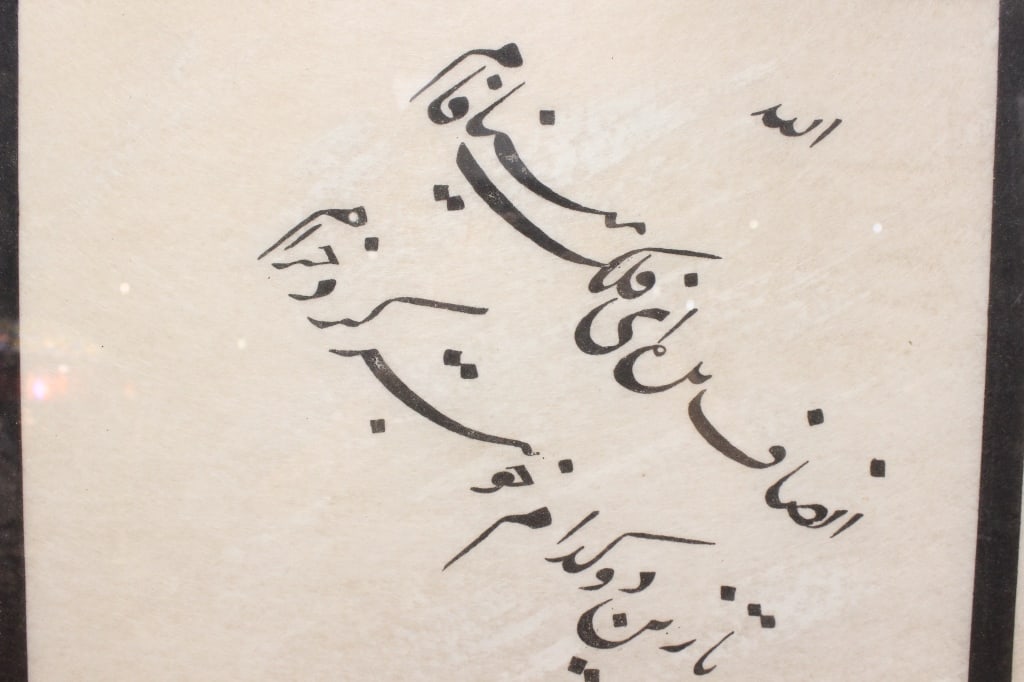 الله
انصاف بده ای فلک مینا فام
تا زین دو کدام خوبتر کرد خرام